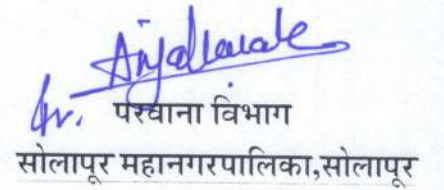 परवाना विभाग
सोलापूर महानगरपालिका,सोलापूर